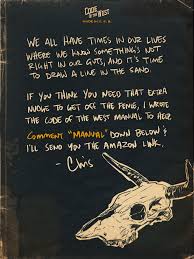 CODE of the WEST
WE ALL HAVE TIMES IN OUR LIVES
WHERE WE KNOW SOMETHING'S NOT
RIGHT IN OUR GUTS, AND IT'S TIME
TO DRAW A LINE IN THE SAND.
IF YOU THINK YOU NEED THAT EXTRA
NUDGE TO GET OFF THE FENCE, I WROTE
THE CODE OF THE WEST MANUAL TO HELP.
COMMENT "MANUAL" DOWN BELOW &
I'LL SEND YOU THE AMAZON LINK.
- Chris